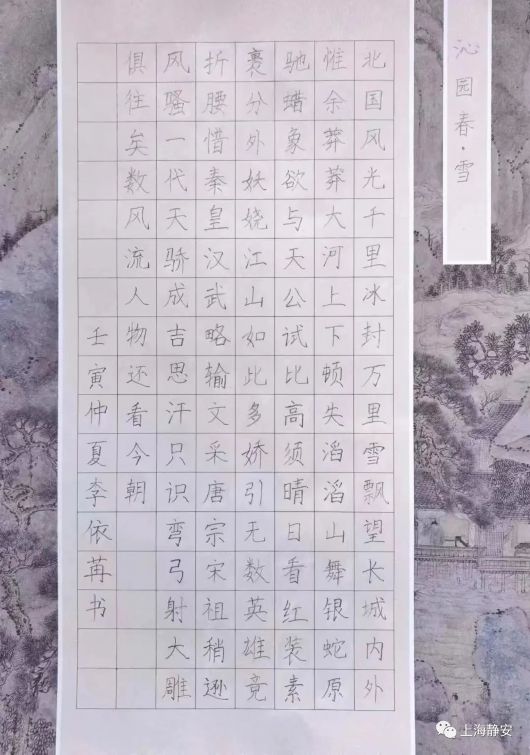 沁园春·雪
北国风光千里冰封万里雪飘望长城内外
惟余莽莽大河上下顿失滔滔山舞银蛇原
驰蜡象欲与天公试比高须晴日看红装素
裹分外妖娆江山如此多娇引无数英雄竞
折腰惜秦皇汉武略输文采唐宗宋祖稍逊
风骚一代天骄成吉思汗只识弯弓射大雕
俱往矣数风流人物还看今朝
壬寅仲夏李依苒书
上海静安